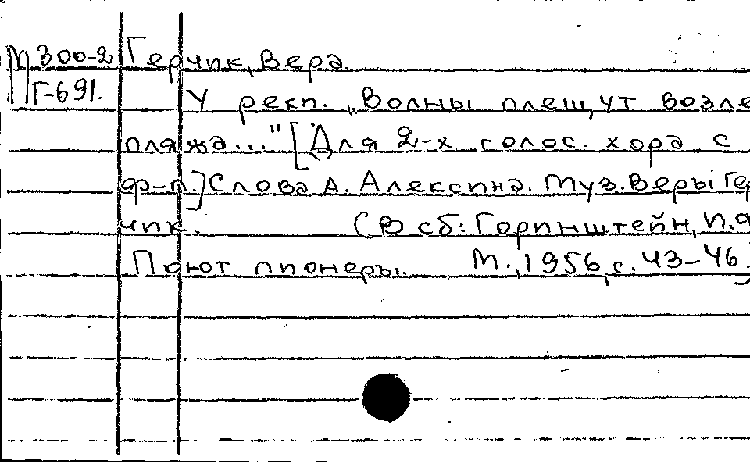 М 300-2 Герчик, Вера.
Г-691. У реки. „Волны плещут возле
пляжа..." [Для 2-х голос. хора с
ф-п.] Слова А. Алексина. Муз. Веры Гер
чик. (В сб: Горинштейн,
Поют пионеры. М., 1956, с. 43-46.